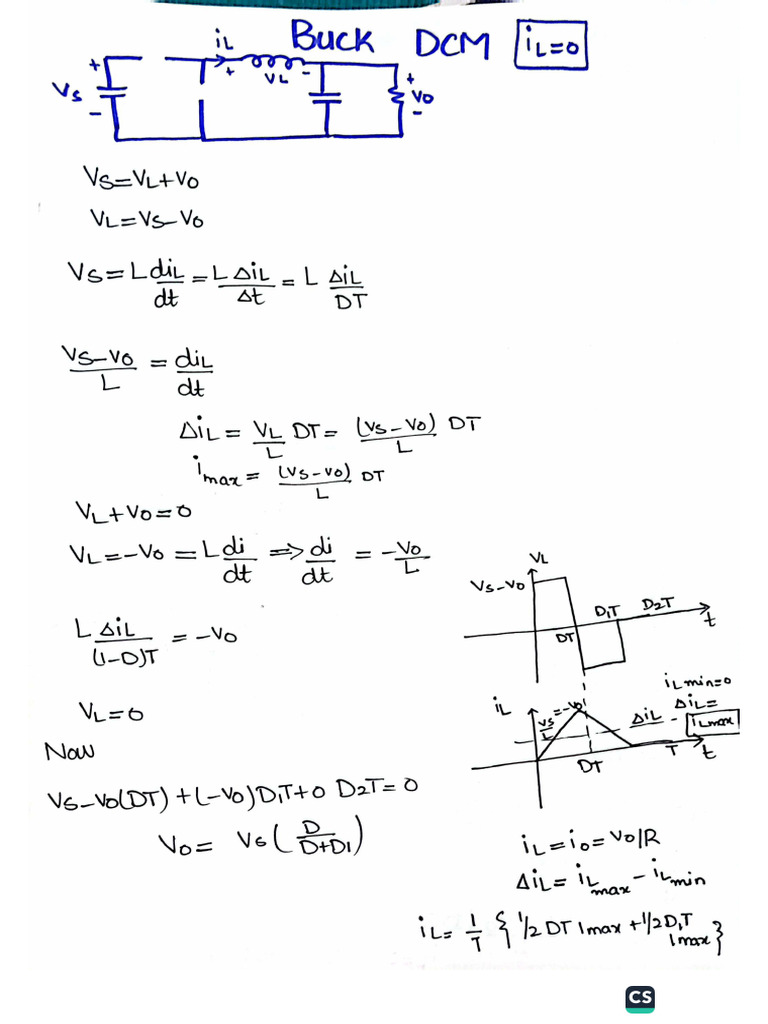 Buck DCM iL=0
iL
+ VL -
+ Vs -
+ Vo -
Vs=VL+Vo
VL=Vs-Vo
Vs=L diL/dt = L ΔiL/Δt = L ΔiL/DT
Vs-Vo/L = diL/dt
ΔiL = VL/L DT = (Vs-Vo)/L DT
imax = (Vs-Vo)/L DT
VL+Vo=0
VL=-Vo = L di/dt => di/dt = -Vo/L
L ΔiL/(1-D)T = -Vo
VL=0
Now
Vs-Vo(DT)+(-Vo)D1T+0 D2T=0
Vo= Vs(D/D+D1)
VL
Vs-Vo
DT
D1T
D2T
t
iL
Vs/L
=-Vo
iL min=0
ΔiL
ΔiL=
iLmax
DT
T
t
iL=io=Vo/R
ΔiL= iLmax - iLmin
iL= 1/T {1/2 DT Imax +1/2 D1T
Imax}
CS